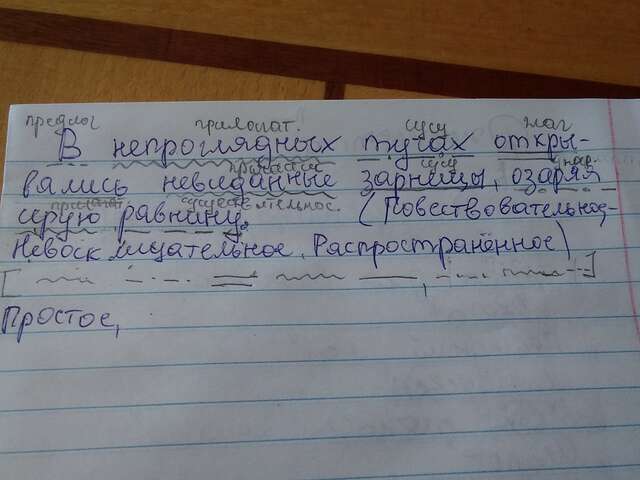 предлог прилогат. сущ глаг
В непроглядных тучах откры-
прилагат сущ
вались невиданные зарницы, озаряя
прилагат. существительное.
серую равнину. (Повествовательное,
Невосклицательное, Распространённое)
Простое,